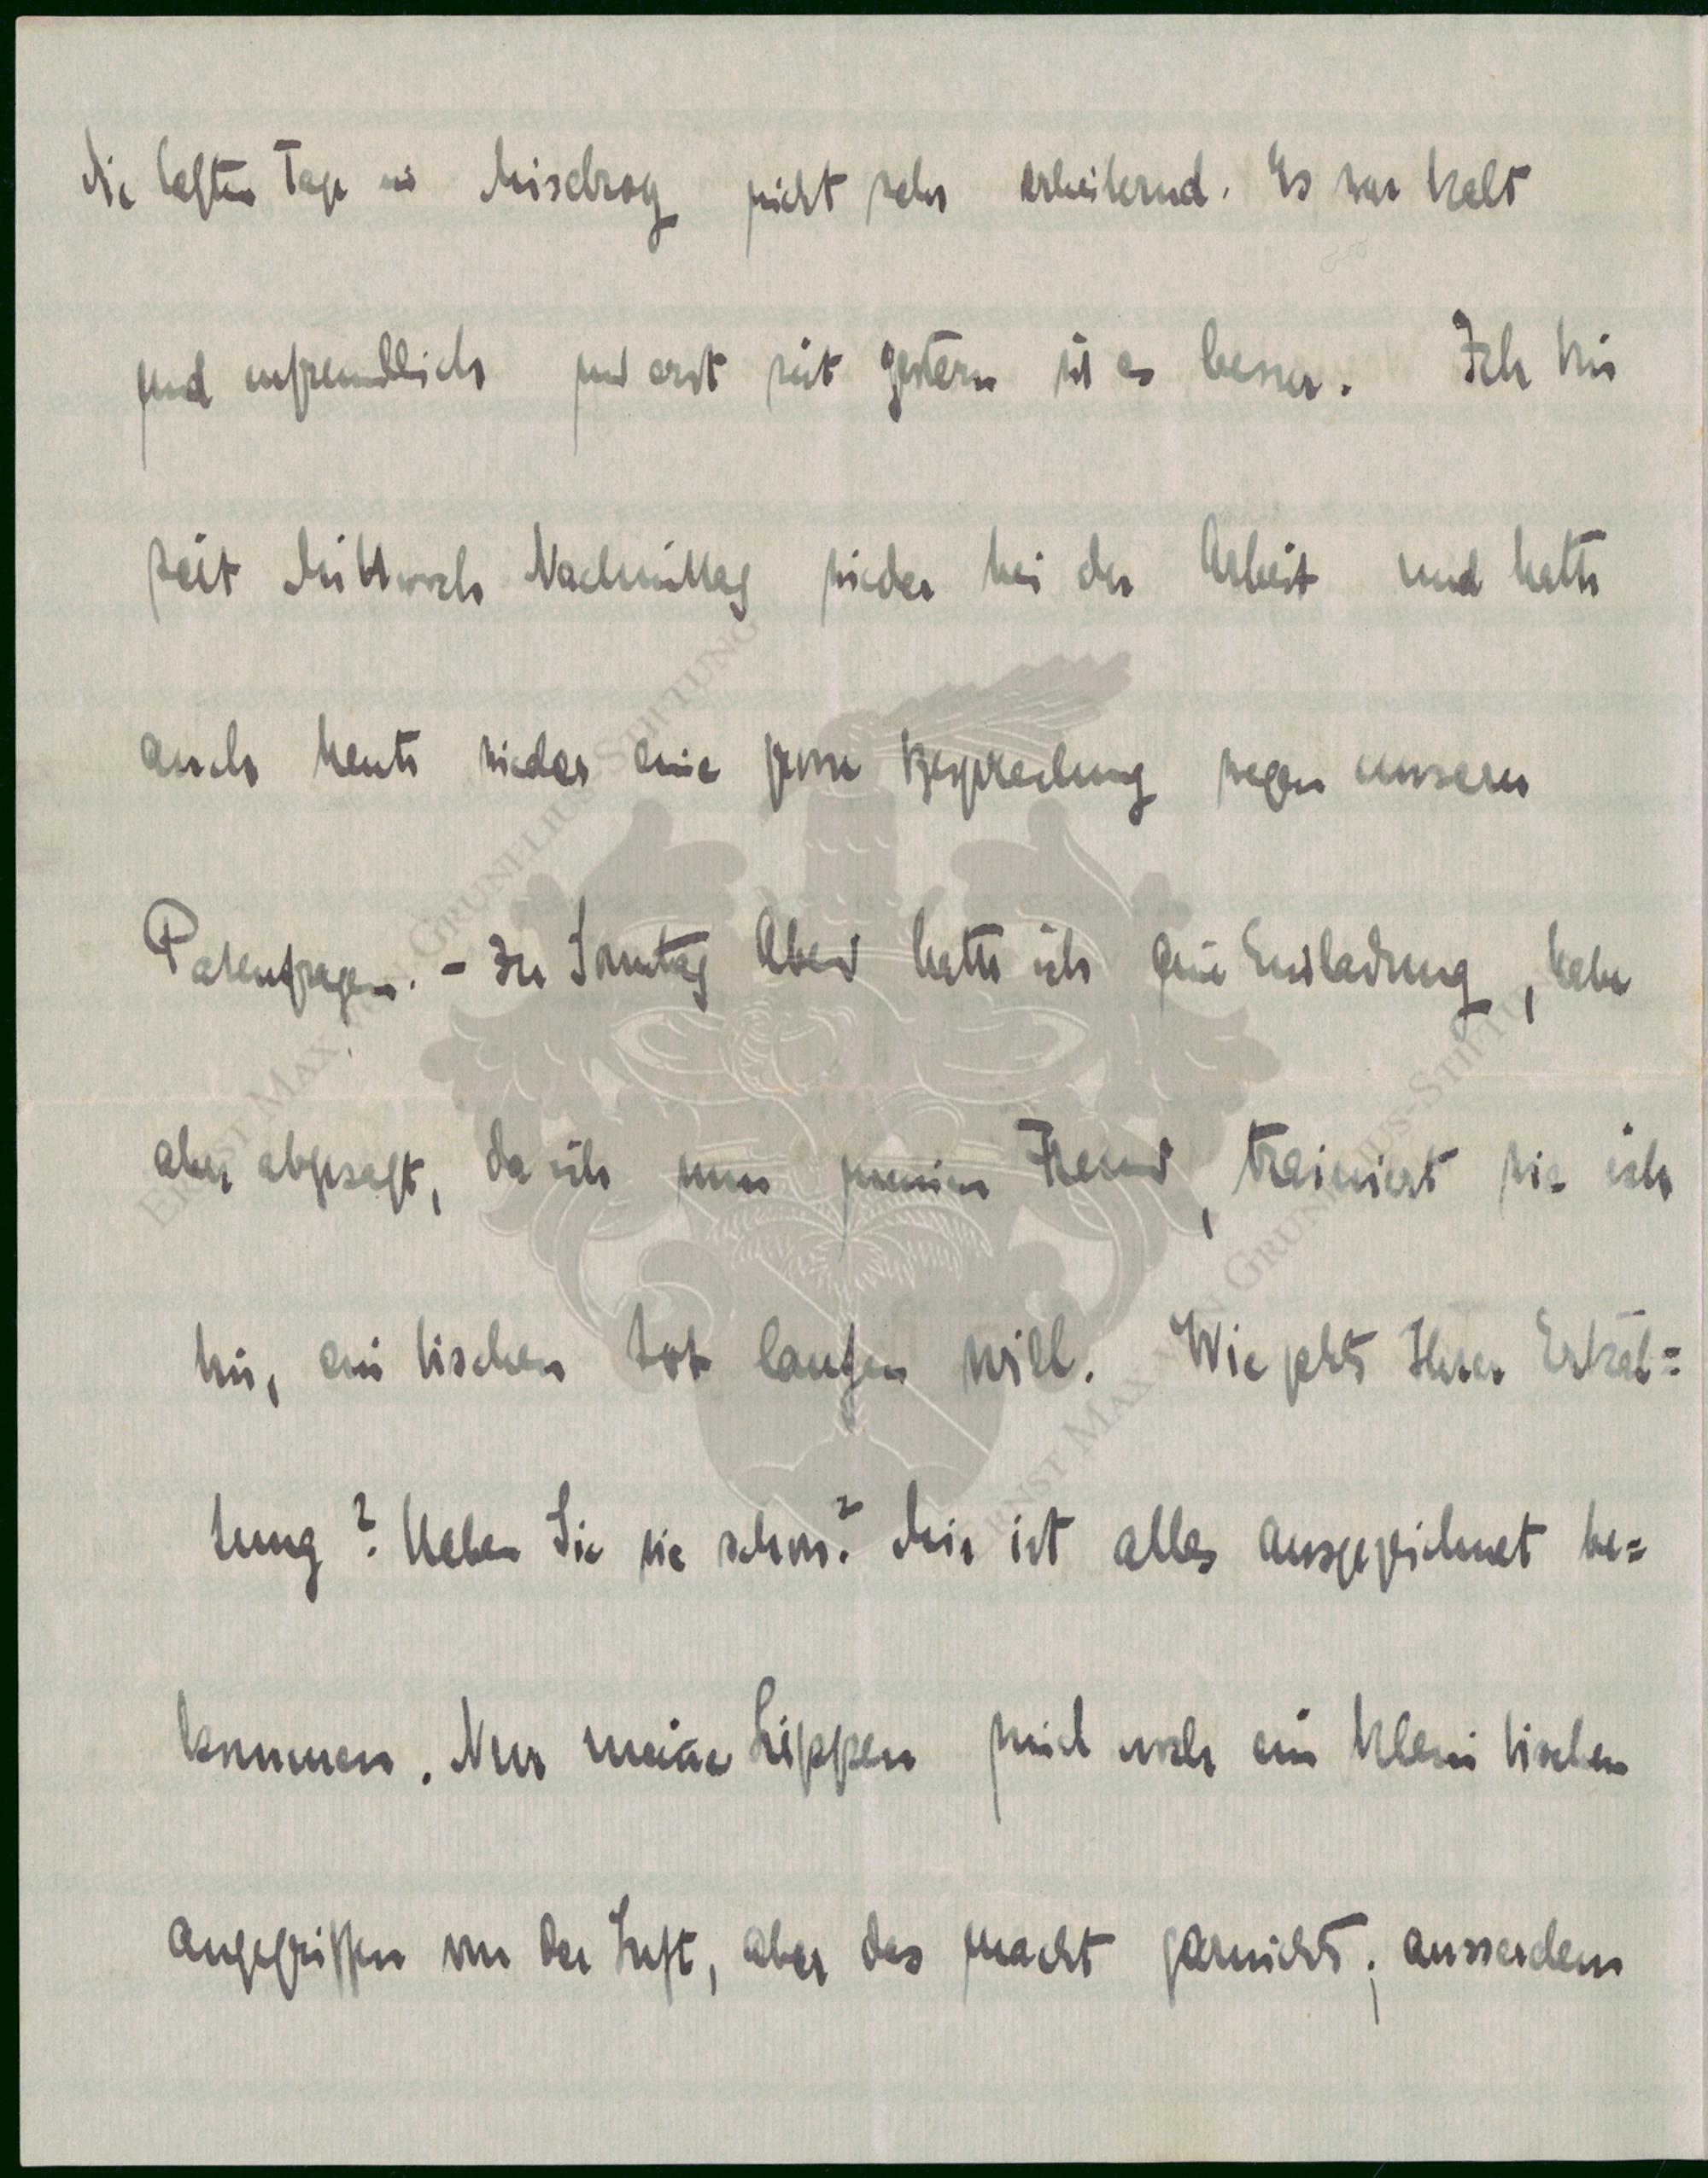 Die letzten Tage in Misdroy nicht sehr erheiternd. Es war kalt
und unfreundlich und erst seit gestern ist es besser. Ich bin
seit Mittwoch Nachmittag wieder bei der Arbeit und hatte
auch heute wieder eine grosse Besprechung wegen unseren
Patentfragen. - Zu Sonntag Abend hatte ich eine Einladung, habe
aber abgesagt, da ich nun meinen Freund, trainiert wie ich
bin, ein bischen tot laufen will. Wie gehts Ihrer Erkäl=
tung? Haben Sie sie schon? Mir ist alles ausgezeichnet be=
kommen. Nur meine Lippen sind noch ein klein bischen
angegriffen von der Luft, aber das macht garnichts; ausserdem
ERNST MAX VON GRUNELIUS-STIFTUNG
ERNST MAX VON GRUNELIUS-STIFTUNG